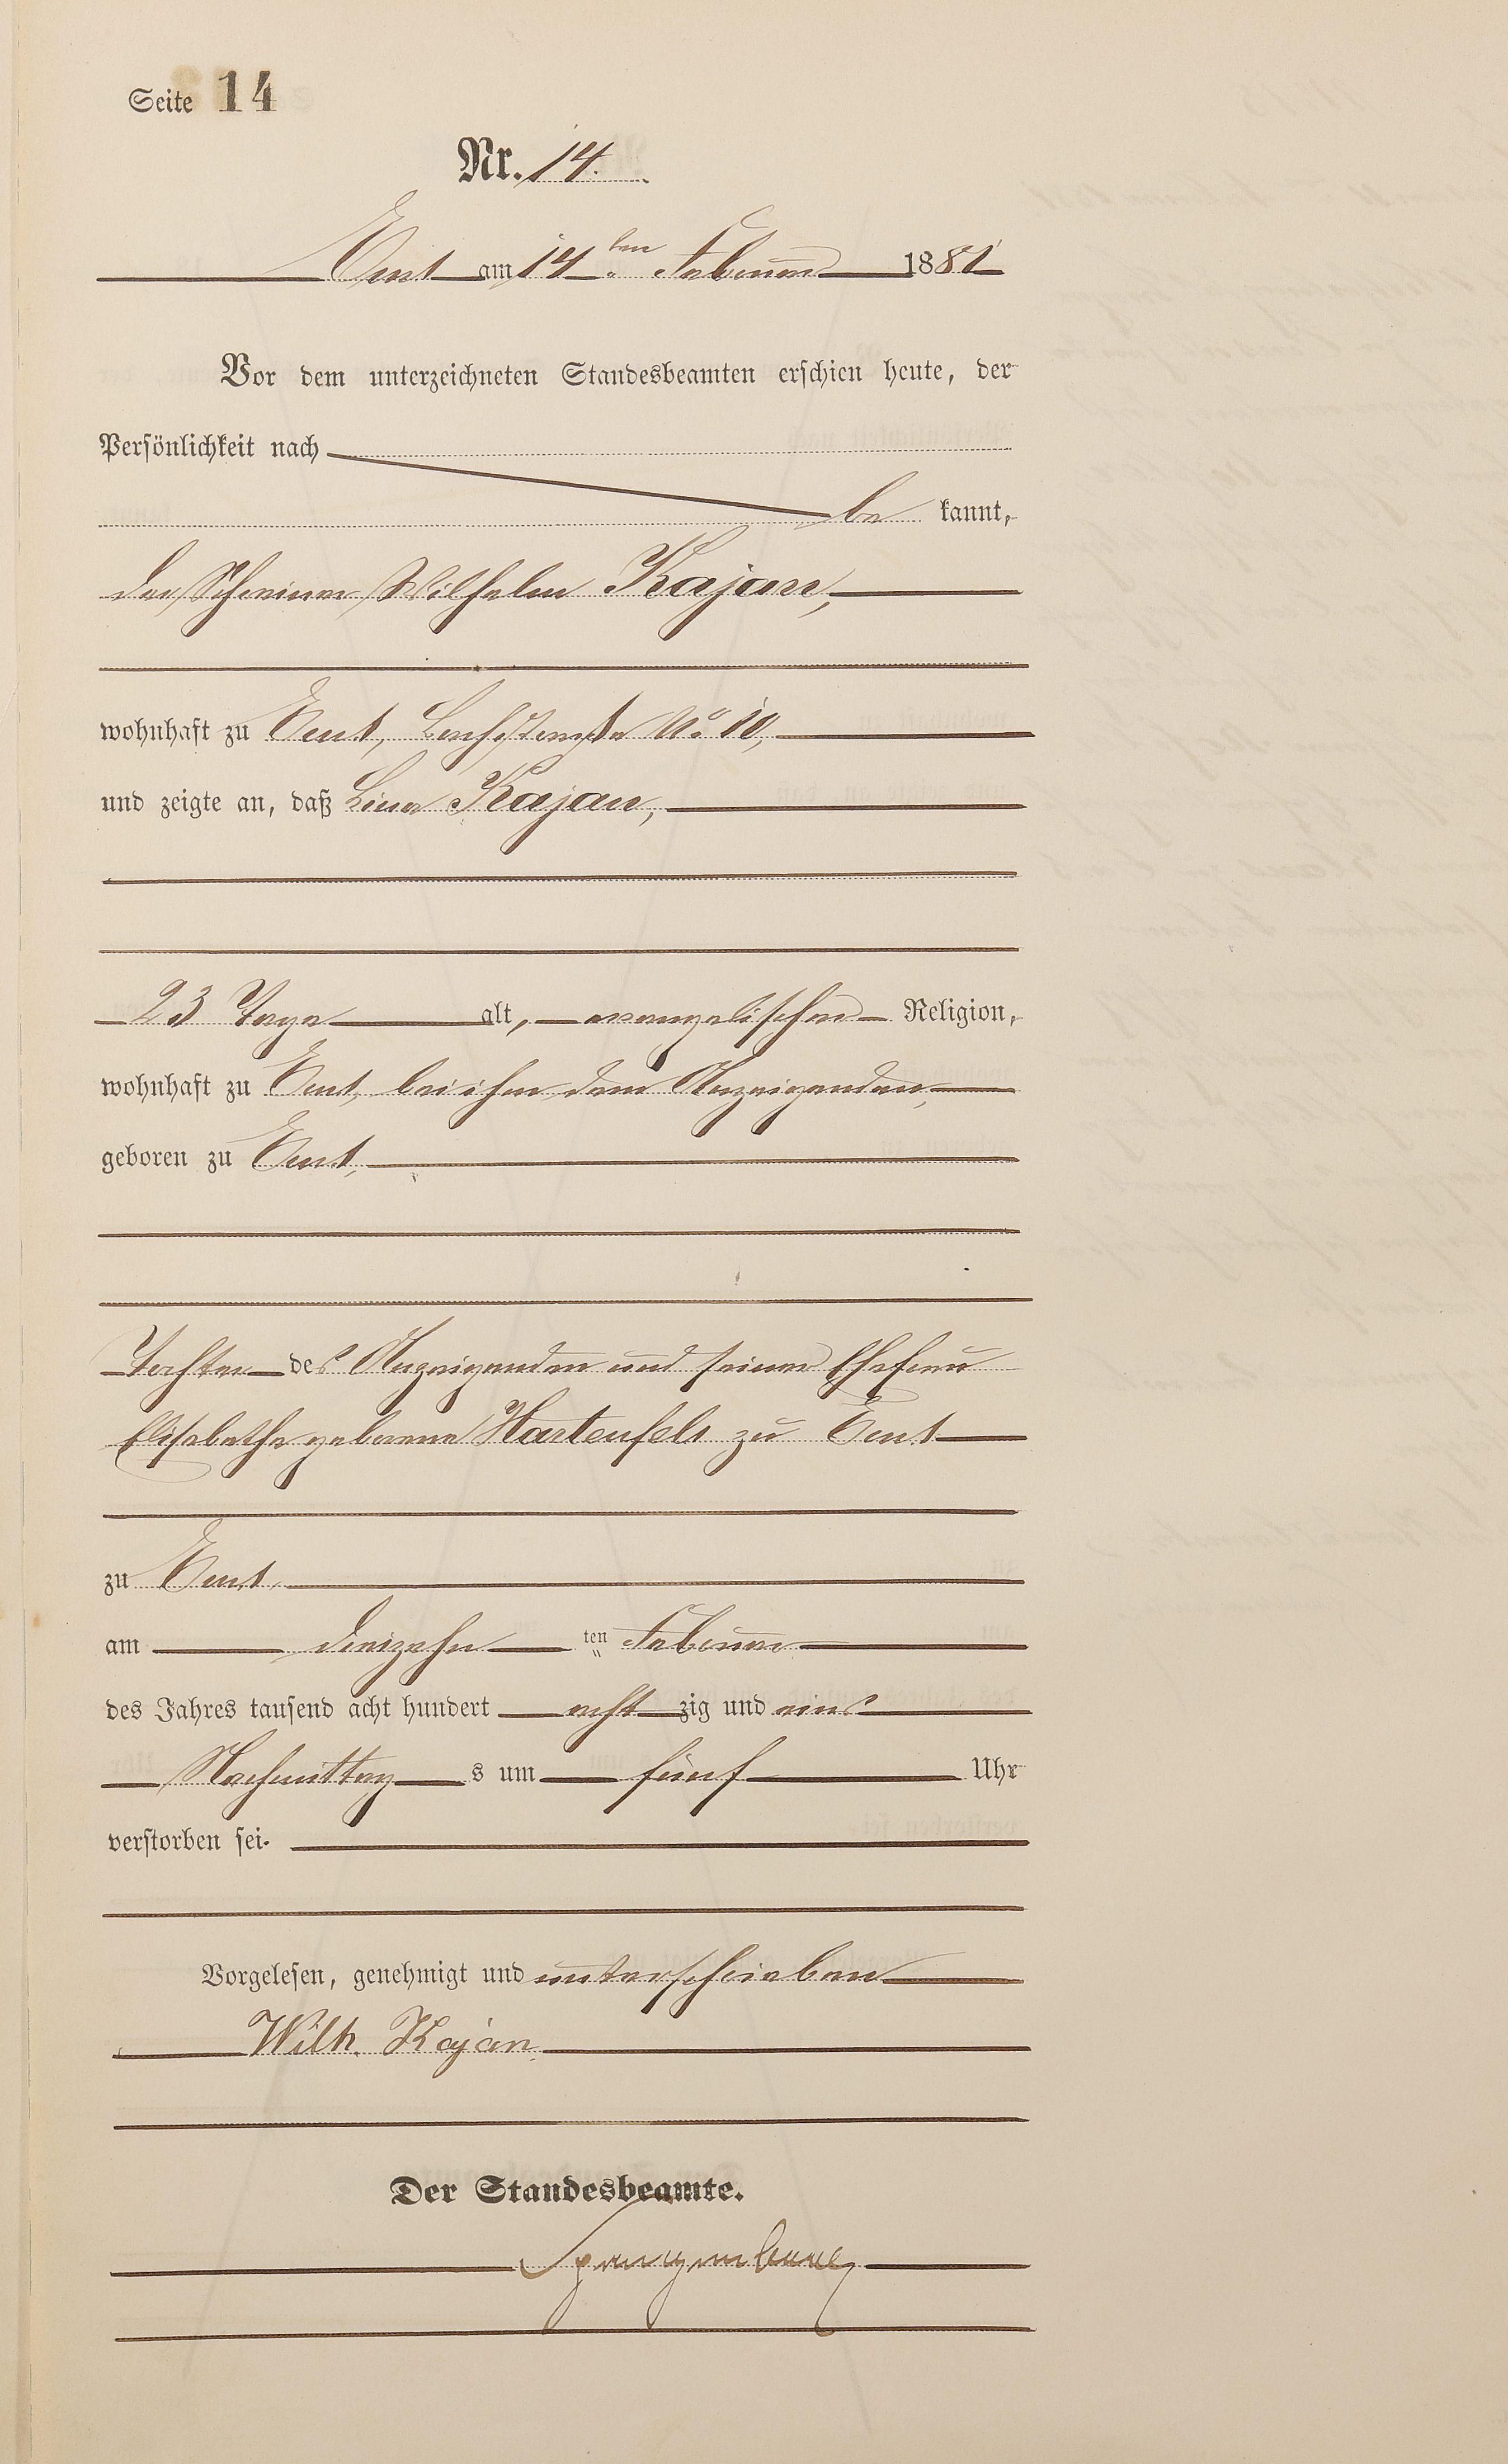 Seite 14
Nr. 14.
Ems am 14ten Februar 1881
Vor dem unterzeichneten Standesbeamten erschien heute, der
Persönlichkeit nach
be kannt,
der Schreiner Wilhelm Kajan,
wohnhaft zu Ems, No 10,
und zeigte an, daß Lina Kajan,
23 Tage alt, evangelischer Religion,
wohnhaft zu Ems, bei ihm dem Anzeigenden,
geboren zu Ems,
Tochter des Anzeigenden und seiner Ehefrau
Elisabetha geborene Hartenfels zu Ems
zu Ems,
am dreizehn ten Februar
des Jahres tausend acht hundert acht zig und eins
Nachmittag s um fünf Uhr
verstorben sei.
Vorgelesen, genehmigt und unterschrieben
Wilh. Kajan.
Der Standesbeamte.
Spangenberg